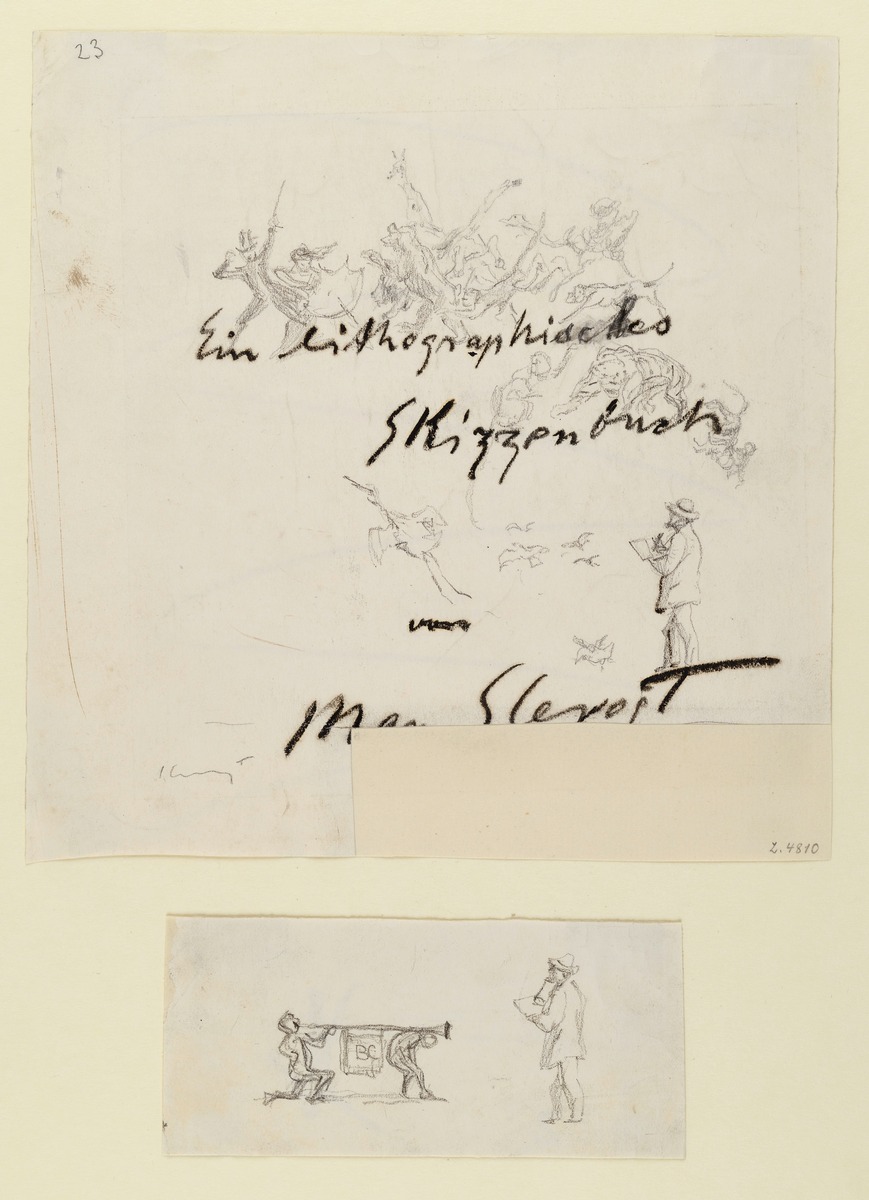 23
Ein lithographisches
Skizzenbuch
von
Max Slevogt
Z. 4810
BC